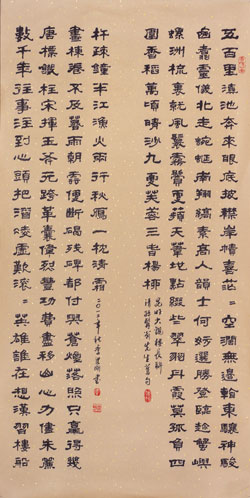 五百里滇池奔來眼底披襟岸幘喜茫〻空濶無邊看東驤神駿
西翥靈儀北走蜿蜒南翔縞素高人韻士何妨選勝登臨趁蟹嶼
螺洲梳裹就風鬟霧鬢更蘋天葦地點綴些翠羽丹霞莫孤負四
圍香稻萬頃晴沙九夏芙蓉三春楊柳
昆明大觀樓長聯
清孫髯翁先生撰句
數千年往事注到心頭把酒凌虛歎滾〻英雄誰在想漢習樓船
唐標鐵柱宋揮玉斧元跨革囊偉烈豐功費盡移山心力儘珠簾
畫棟卷不及暮雨朝雲便斷碣殘碑都付與蒼煙落照只贏得幾
杵疏鐘半江漁火兩行秋雁一枕清霜